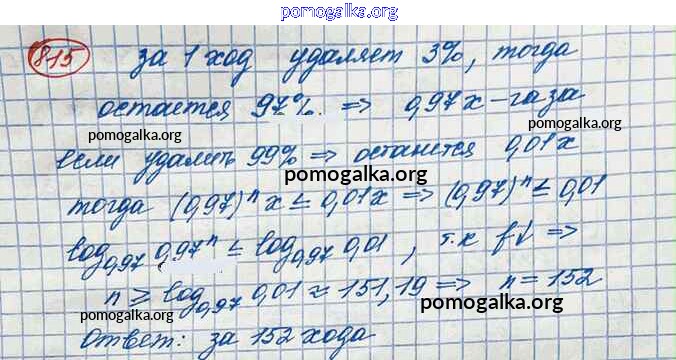 pomogalka.org
815 за 1 ход удаляет 3%, тогда
остается 97% ⇒ 0,97x – газа
pomogalka.org pomogalka.org
если удалить 99% ⇒ останется 0,01x
pomogalka.org
тогда (0,97)ⁿ x ≤ 0,01x ⇒ (0,97)ⁿ ≤ 0,01
pomogalka.org
log₀,₉₇ 0,97ⁿ ≤ log₀,₉₇ 0,01 , т.к f↓ ⇒
n ≥ log₀,₉₇ 0,01 ≈ 151,19 ⇒ n = 152
pomogalka.org pomogalka.org
Ответ: за 152 хода